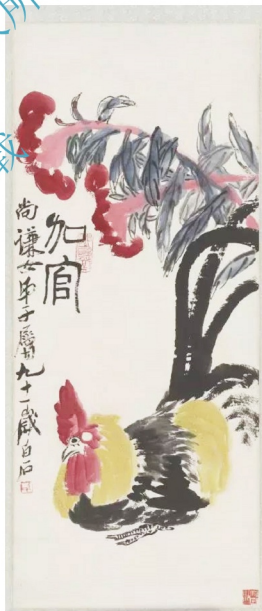 加官
尚谦女弟子属 九十一岁白石